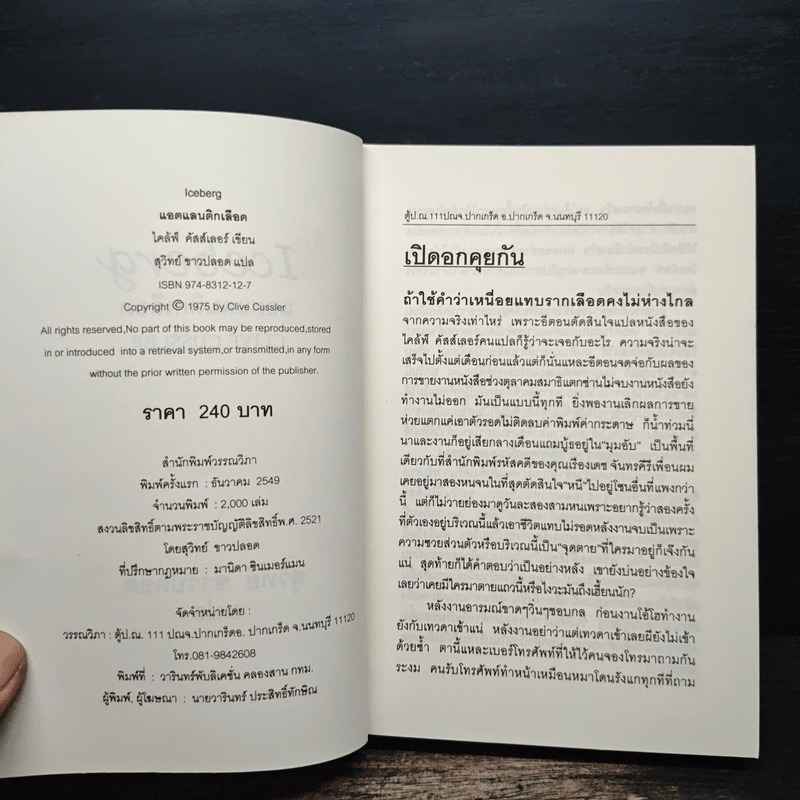 Iceberg
แอตแลนติกเลือด
ไคล้ฟ์ คัสส์เลอร์ เขียน
สุวิทย์ ขาวปลอด แปล
ISBN 974-8312-12-7
Copyright © 1975 by Clive Cussler
All rights reserved,No part of this book may be reproduced,stored
in or introduced into a retrieval system,or transmitted,in any form
without the prior written permission of the publisher.
ราคา 240 บาท
สำนักพิมพ์วรรณวิภา
พิมพ์ครั้งแรก : ธันวาคม 2549
จำนวนพิมพ์ : 2,000 เล่ม
สงวนลิขสิทธิ์ตามพระราชบัญญัติลิขสิทธิ์พ.ศ. 2521
โดยสุวิทย์ ขาวปลอด
ที่ปรึกษากฎหมาย : มานิดา ซินเมอร์แมน
จัดจำหน่ายโดย :
วรรณวิภา : ตู้ป.ณ. 111 ปณจ.ปากเกร็ดอ. ปากเกร็ด จ.นนทบุรี 11120
โทร.081-9842608
พิมพ์ที่ : วารินทร์พับลิเคชั่น คลองสาน กทม.
ผู้พิมพ์, ผู้โฆษณา : นายวารินทร์ ประสิทธิ์ทักษิณ
ตู้ป.ณ.111ปณจ.ปากเกร็ด อ.ปากเกร็ด จ.นนทบุรี 11120
เปิดอกคุยกัน
ถ้าใช้คำว่าเหนื่อยแทบรากเลือดคงไม่ห่างไกล
จากความจริงเท่าไหร่ เพราะอีตอนตัดสินใจแปลหนังสือของ
ไคล้ฟ์ คัสส์เลอร์คนแปลก็รู้ว่าจะเจอกับอะไร ความจริงน่าจะ
เสร็จไปตั้งแต่เดือนก่อนแล้วแต่ก็นั่นแหละอีตอนจดจ่อกับผลของ
การขายงานหนังสือช่วงตุลาคมสมาธิแตกซ่านไม่จบงานหนังสือยัง
ทำงานไม่ออก มันเป็นแบบนี้ทุกที ยิ่งพองานเลิกผลการขาย
ห่วยแตกแค่เอาตัวรอดไม่ติดลบค่าพิมพ์ค่ากระดาษ ก็น้ำท่วมนี่
นาและงานก็อยู่เสียกลางเดือนแถมบู้ธอยู่ใน"มุมอับ" เป็นพื้นที่
เดียวกับที่สำนักพิมพ์รหัสคดีของคุณเรืองเดช จันทรคีรีเพื่อนผม
เคยอยู่มาสองหนจนในที่สุดตัดสินใจ"หนี"ไปอยู่โซนอื่นที่แพงกว่า
นี้ แต่ก็ไม่วายย่องมาดูวันละสองสามหนเพราะอยากรู้ว่าสองครั้ง
ที่ตัวเองอยู่บริเวณนี้แล้วเอาชีวิตแทบไม่รอดหลังงานจบเป็นเพราะ
ความซวยส่วนตัวหรือบริเวณนี้เป็น"จุดตาย"ที่ใครมาอยู่ก็เจ๊งกัน
แน่ สุดท้ายก็ได้คำตอบว่าเป็นอย่างหลัง เขายังบ่นอย่างข้องใจ
เลยว่าเคยมีใครมาตายแถวนี้หรือไงวะมันถึงเฮี้ยนนัก?
หลังงานอารมณ์ขาดๆวิ่นๆชอบกล ก่อนงานโอ้โฮทำงาน
ยังกับเทวดาเข้าแน่ หลังงานอย่าว่าแต่เทวดาเข้าเลยผียังไม่เข้า
ด้วยซ้ำ ตานี้แหละเบอร์โทรศัพท์ที่ให้ไว้คนจองโทรมาถามกัน
ระงม คนรับโทรศัพท์ทำหน้าเหมือนหมาโดนรังแกทุกทีที่ถาม